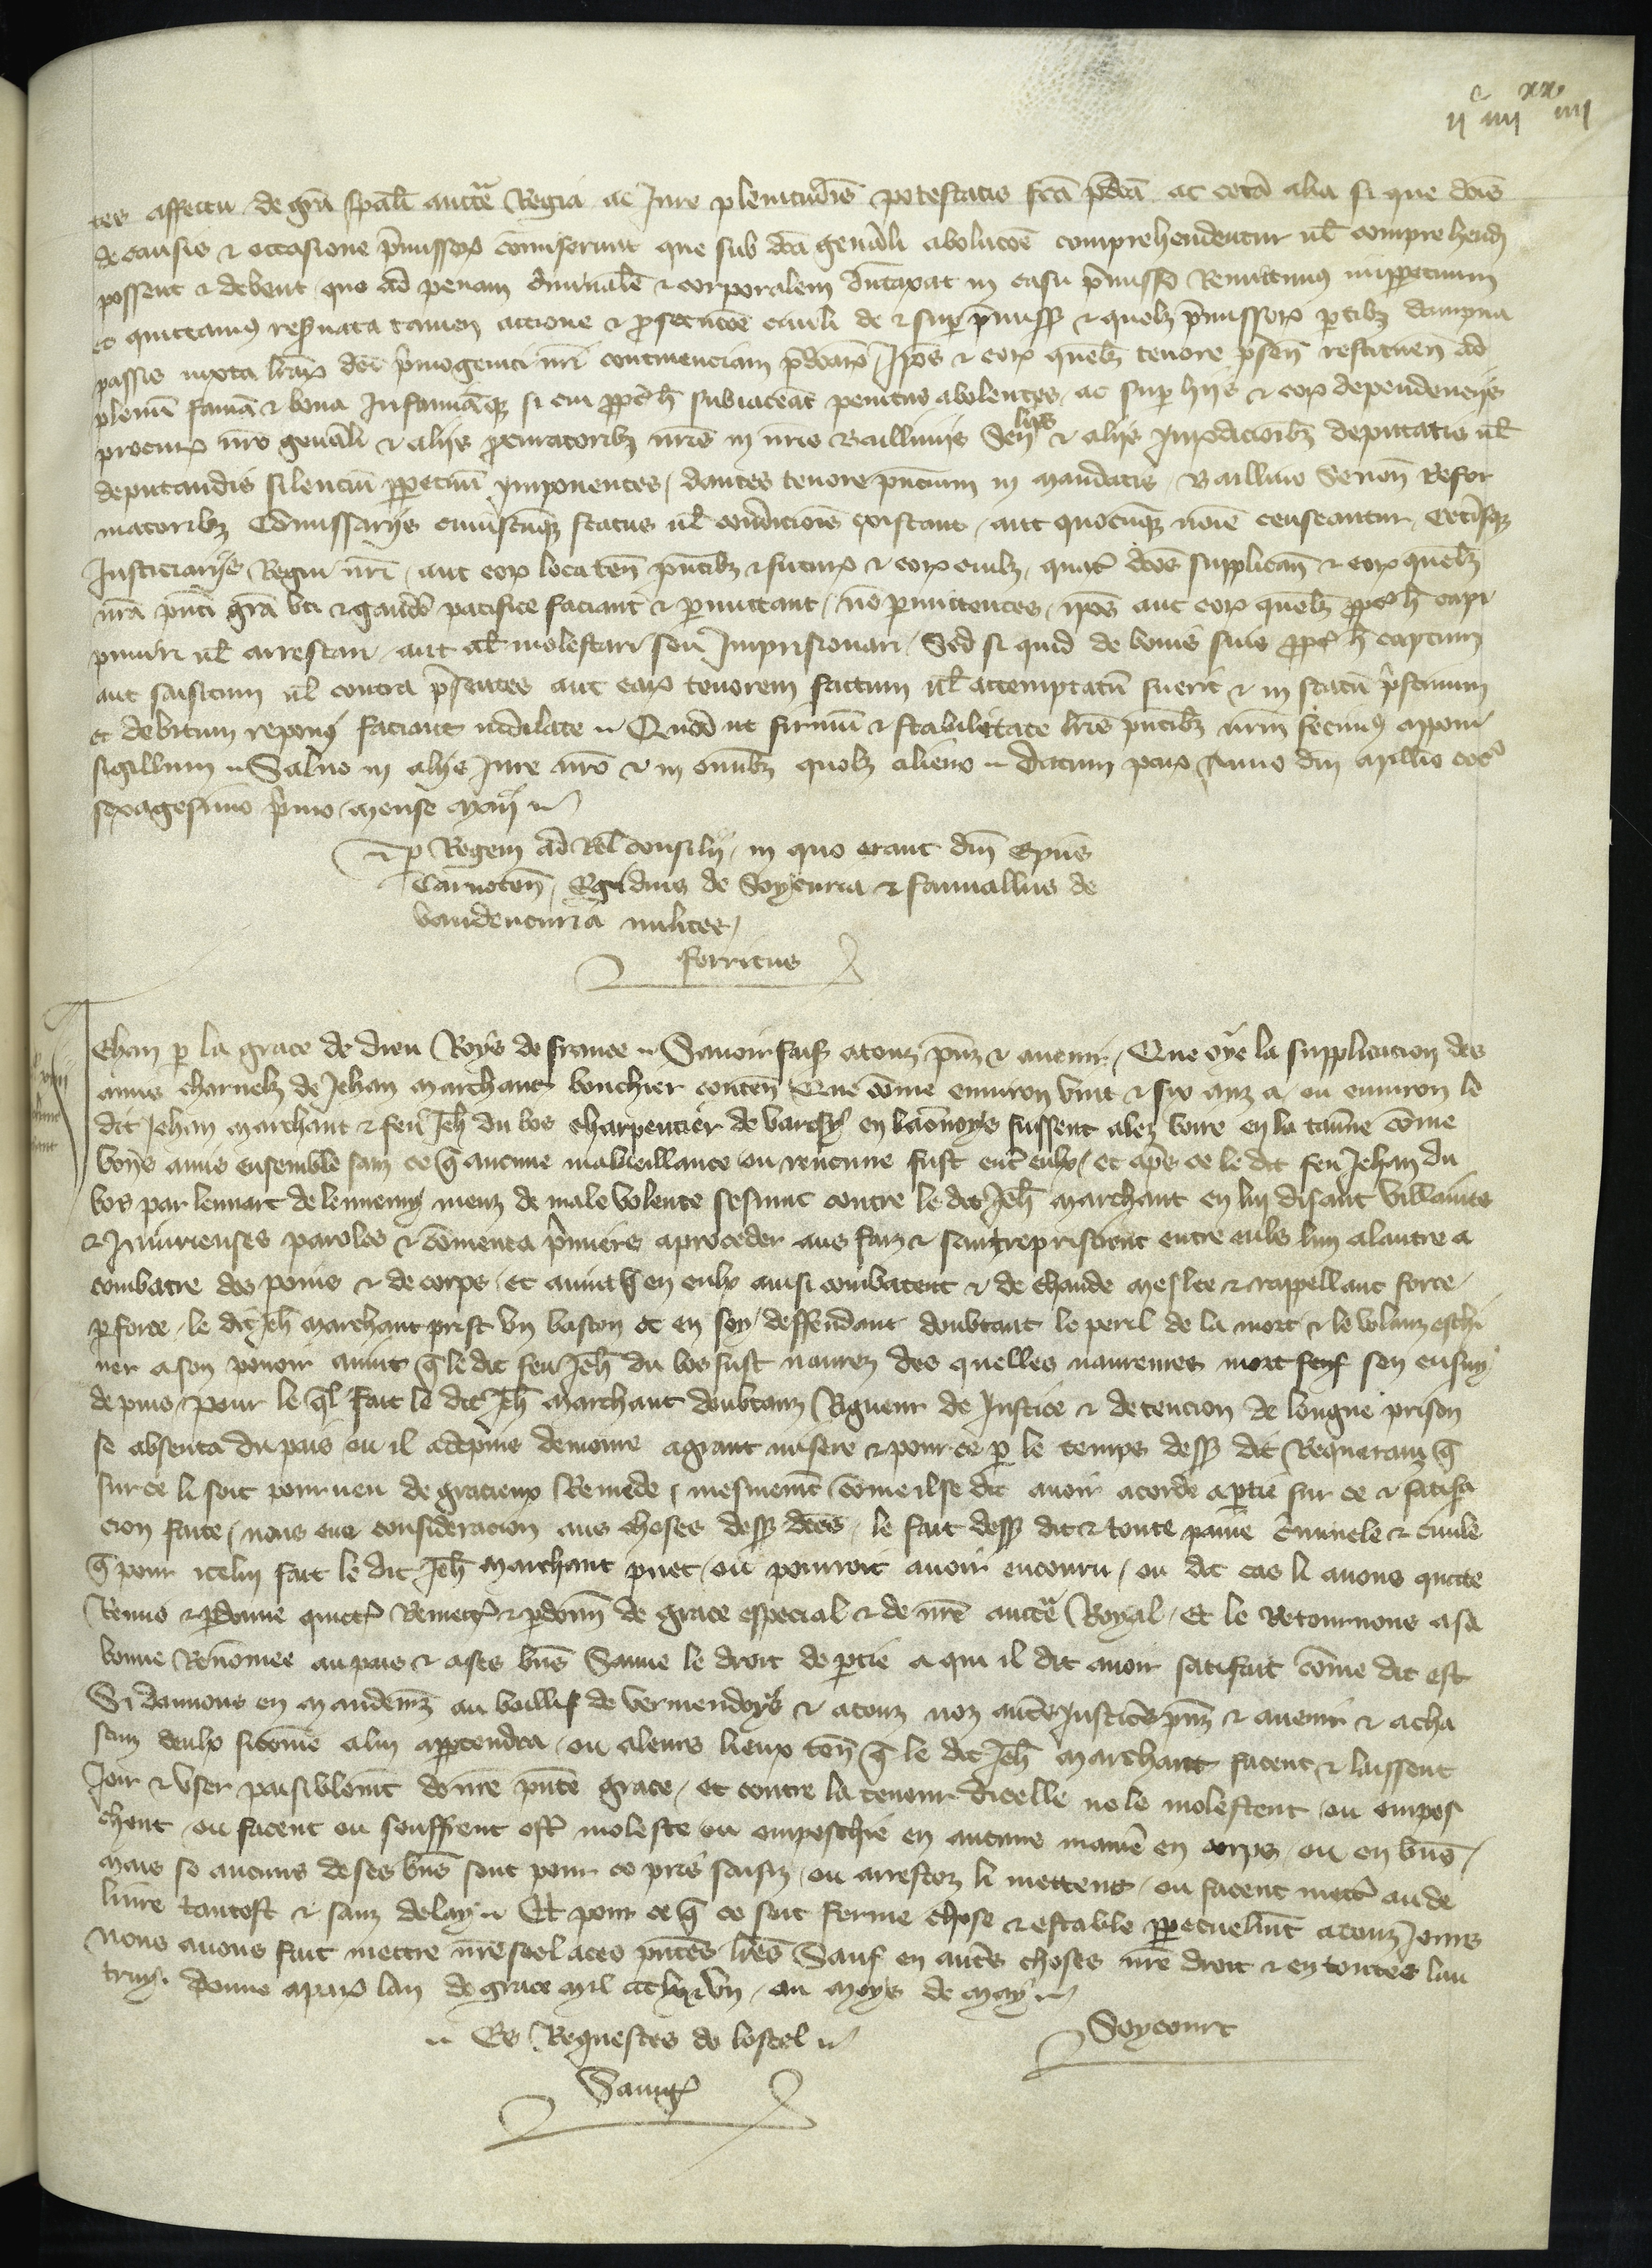 iic iiiixx iiii
tes affectu de gra spali auctte Regia ac Iure plenitudis potestatis fca pdca ac ceta alia si que dcis
de causis & occasione pmissor comiserunt que sub dca genali abolucoe comprehendentur ul comprehendi
possent & debent quo ad penam criminale & corporalem dutaxat in casu pmisso Remittimus imppetuum
et quittamus reservata tamen accione & prosecucoe civili de & sup pmissis & quolz pmissor ptibz dampna
passis iuxta lrar dci pmogeniti nri continenciam pdcaru / Ipos & eor quelz tenore psen restituen ad
plenu fama & bona Infamiaqz si cui ppter h subiaceat penitus abolentes / ac sup hiis & eor dependenciis
procur nro genali & aliis procuratoribz nris in nris Bailliviis Senliis & aliis Iuridicioibz deputatis ul
deputandis silenciu ppetuu Imponentes / dantes tenore pncium in mandatis / Baillivo Senon Refor
matoribz Comissariis cuiuscuqz status ul condicionis existant / aut quocuqz noie censeantur / Cetisqz
Iusticiariis Regni nri / aut eor locaten pntibz & futur & eor cuilz / quatr dcos supplican & eor quelz
nra pnti gra uti & gaude pacifice faciant & pmittant / no pmittentes / ipos aut eor quelz ppter h capi
puniri ul arrestari / aut al molestari seu Imprisionari / Sed si quid de bonis suis ppter h captum
aut saisitum ul contra psentes aut ear tenorem factum ul attemptatu fuerit & in statu pstinum
et debitum reponi faciant indilate Quod ut firmu & stabilitate lris pntibz nrm fecimus apponi
sigillum Salvo in aliis Iure nro & in omibz quolz alieno Datum par Anno dni Millio ccco
sexagesimo pmo / mense maii
p Regem ad Rel consilii / in quo erant dni Epus
Carnoten / Egidius de Soyecuria & fauvallus de
vaudencuria milites /
ferricus
Jehan p la grace de dieu Roys de france Savoir faiss atouz pnz & avenir / Que oye la supplicacion des
amis charnelz de Jehan marchant bouchier conten Que come environ vint & six anz a / ou environ le
dit Jehan marchant & feu Jeh du bos charpentier de varcsy en laonnoys fussent alez boire en la taverne come
bons amis ensemble sanz ce q aucune malveillance ou rencune fust entr eulx / et aps ce le dit feu Jehan du
bos par lennort de lennemy meuz de male volente sesmut contre le dit Jeh marchant en lui disant villanies
& Iniurieuses paroles & comenca pmiers aproceder aus faiz & sentreprisdrent entre euls lun alautre a
combatre des poins & de corps / et avint q en eulx ainsi combatent & de chaude meslee & rappellant force
p force / le dit Jeh marchant prist un baston et en soy deffendant doubtant le peril de la mort & le volanz eschi
ver a son povoir avint q le dit feu Jeh du bos fust navrez des quelles navreures mort sen ensuy
depuis / pour le ql fait le dit Jeh marchant doubtanz Rigueur de Iustice & detencion de longue prison
se absenta du pais ou il adepuis demoure agrant misere & pour ce p le temps dess dit Requeranz q
sur ce li soit pourveu de gracieux Remede / mesmement come il se dit avoir acorde aptie sur ce & satisfa
cion faite / nous eue consideracion aus choses dess dces / le fait dess dit & toute paine criminele & civile
q pour icelui fait le dit Jeh marchant puet / ou pourroit avoir encouru / ou dit cas li avons quitte
Remis & pdonne quictos Remectos & pdonn de grace especial & de nre auctte Royal / Et le Retournons a sa
bonne Renomee au pais & a ses bns Sauve le droit de ptie a qui il dit avoir satisfait come dit est
Si donnons en mandemz au baillif de vermendoys & atouz noz autres Iusticiers pnz & avenir & acha
scun deulx sicome alui apptendra / ou aleurs lieux ten q le dit Jeh marchant facent & laissent
Joir & user paisiblement de nre pnte grace / et contre la teneur dicelle ne le molestent / ou empes
chent / ou facent ou seuffrent estr moleste ou empeschie en aucune manie en corps / ou en bns /
mais se aucuns de ses bns sont pour ce pris saisiz / ou arrestez li mettent / ou facent mectr aude
livre tantost & sanz delay Et pour ce q ce soit ferme chose & estable ppetuelmt atouz Jours
nous avons fait mettre nre seel aces pntes lres Sauf en autres choses nre droit & en toutes lau
truy donne apar lan de grace mil ccc lx & un / ou moys de may
Es Requestes de lostel
Soycourt
Savig